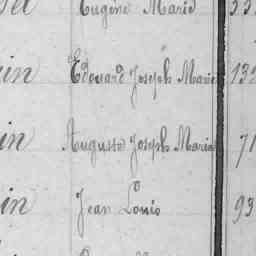 Eugène Marie 33
in Edouard Joseph Marie 132
in Auguste Joseph Marie 71
in Jean Louis 93